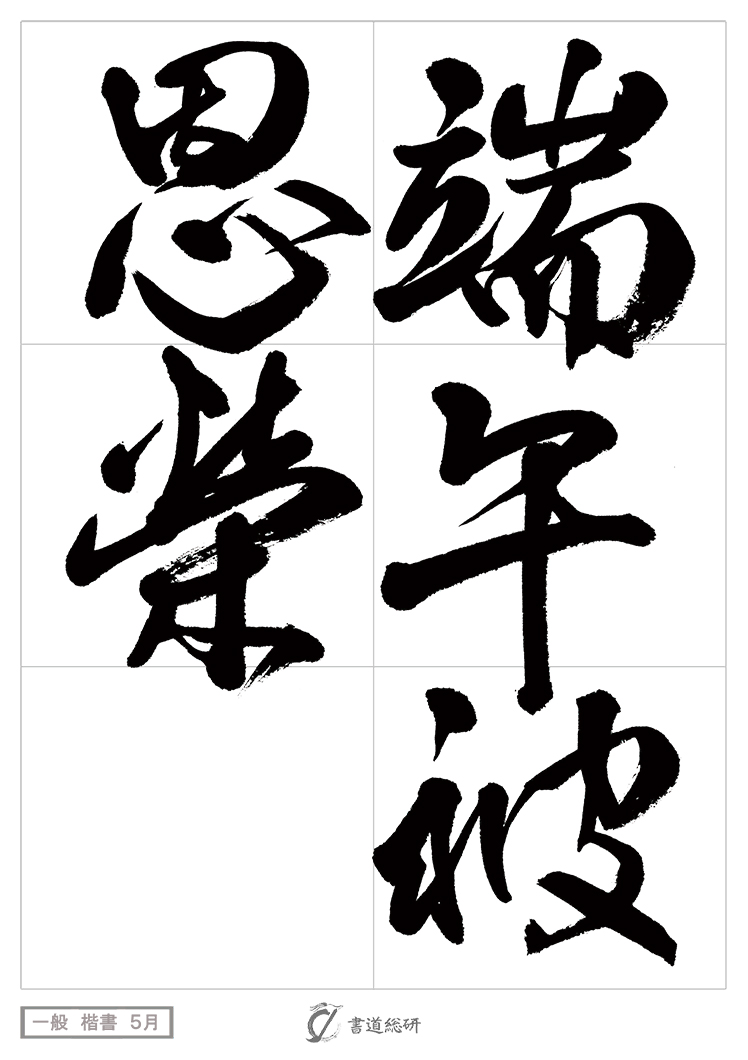 端午被
恩榮
一般 楷書 5月
書道総研